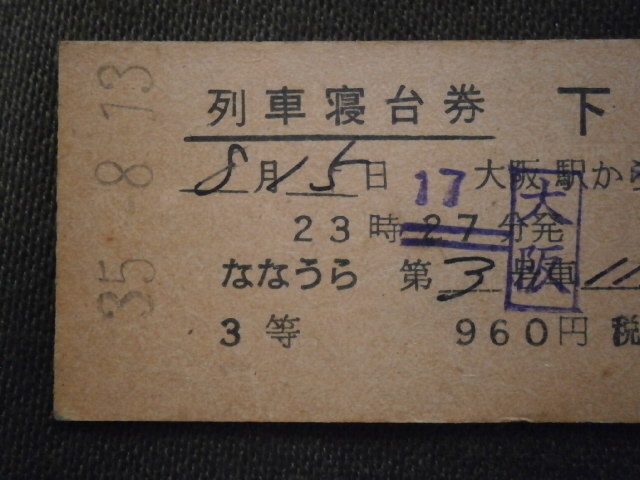 35.-8.13
列車寝台券 下
8月15日 大阪駅から
17
23時27分発
大阪
ななうら 第3号車11
3等 960円 税